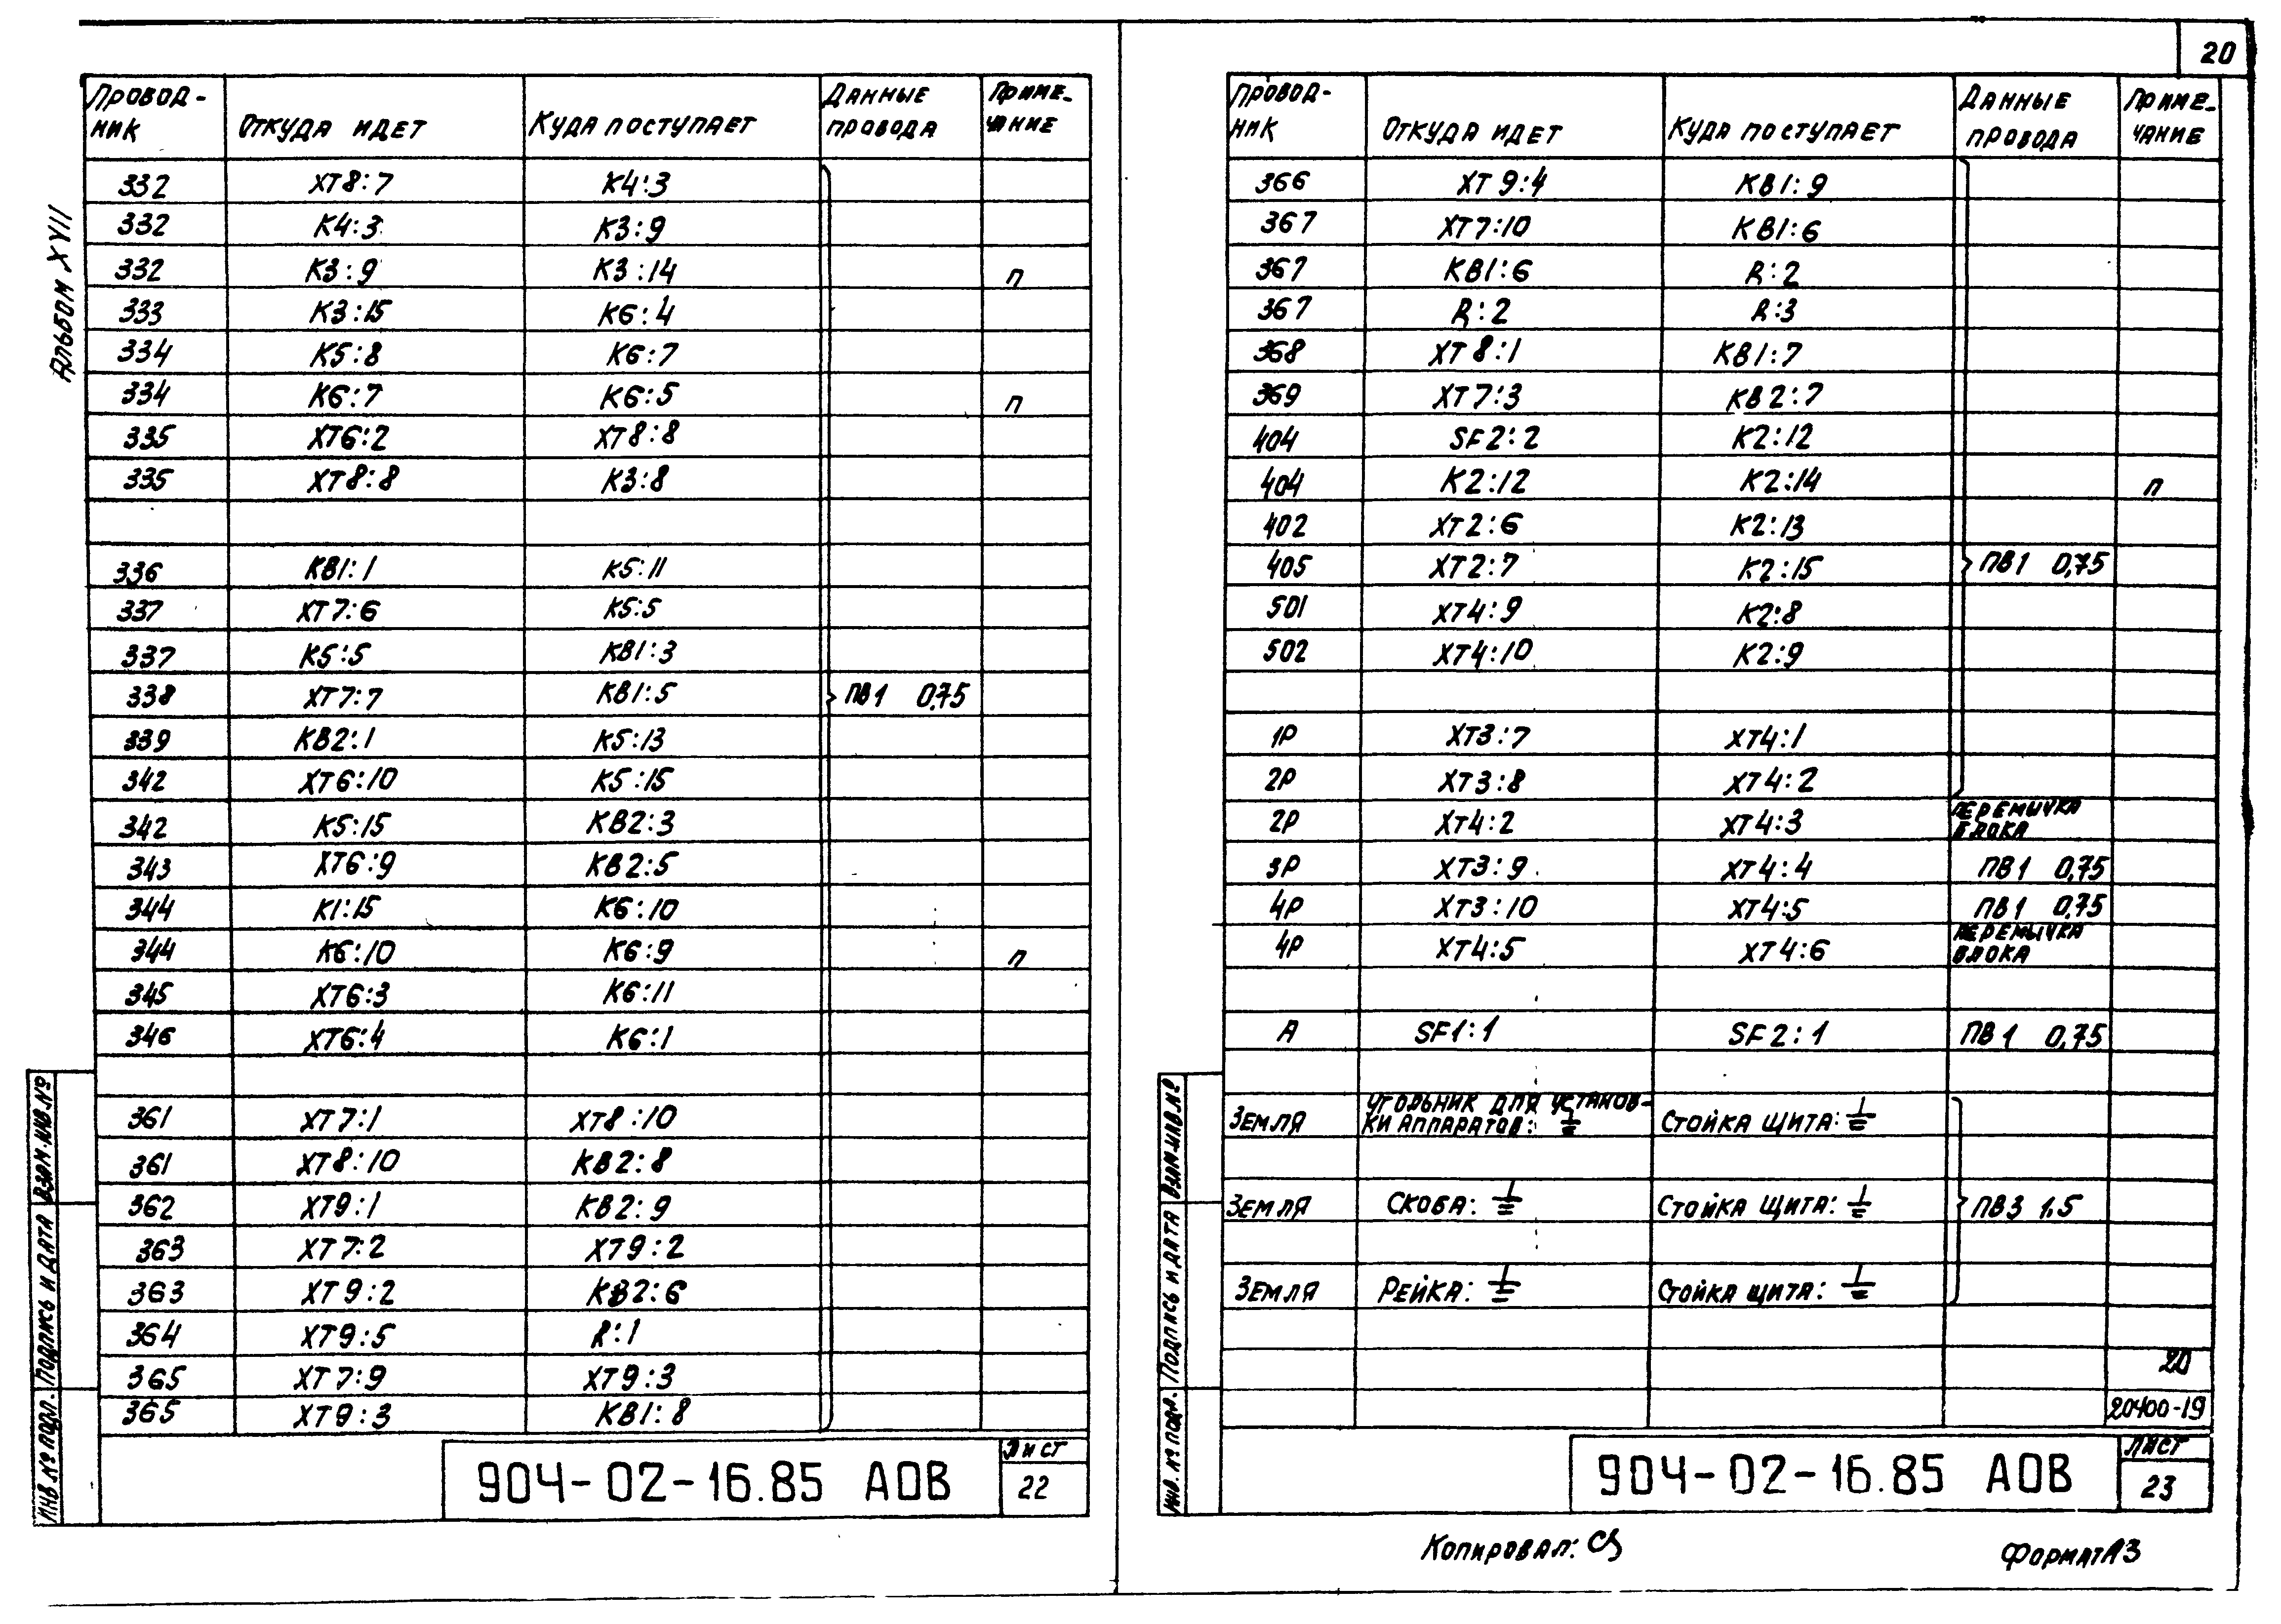 20
Альбом XVII
Провод-
ник Откуда идет Куда поступает Данные
провода Приме-
чание
332 XT8:7 К4:3
332 К4:3 К3:9
332 К3:9 К3:14 п
333 К3:15 К6:4
334 К5:8 К6:7
334 К6:7 К6:5 п
335 XT6:2 XT8:8
335 XT8:8 К3:8
336 КВ1:1 К5:11
337 XT7:6 К5:5
337 К5:5 КВ1:3
338 XT7:7 КВ1:5 ПВ1 0,75
339 КВ2:1 К5:13
342 XT6:10 К5:15
342 К5:15 КВ2:3
343 XT6:9 КВ2:5
344 К1:15 К6:10
344 К6:10 К6:9 п
345 XT6:3 К6:11
346 XT6:4 К6:1
361 XT7:1 XT8:10
361 XT8:10 КВ2:8
362 XT9:1 КВ2:9
363 XT7:2 XT9:2
363 XT9:2 КВ2:6
364 XT9:5 R:1
365 XT7:9 XT9:3
365 XT9:3 КВ1:8
Инв. № подл. Подпись и дата Взам. инв. №
904-02-16.85 АОВ
Лист
22
Провод-
ник Откуда идет Куда поступает Данные
провода Приме-
чание
366 XT9:4 КВ1:9
367 XT7:10 КВ1:6
367 КВ1:6 R:2
367 R:2 R:3
368 XT8:1 КВ1:7
369 XT7:3 КВ2:7
404 SF2:2 К2:12
404 К2:12 К2:14 п
402 XT2:6 К2:13
405 XT2:7 К2:15 ПВ1 0,75
501 XT4:9 К2:8
502 XT4:10 К2:9
1Р XT3:7 XT4:1
2Р XT3:8 XT4:2
2Р XT4:2 XT4:3 Перемычка
блока
3Р XT3:9 XT4:4 ПВ1 0,75
4Р XT3:10 XT4:5 ПВ1 0,75
4Р XT4:5 XT4:6 Перемычка
блока
А SF1:1 SF2:1 ПВ1 0,75
Земля Угольник для установ-
ки аппаратов: ⏚ Стойка щита: ⏚
Земля Скоба: ⏚ Стойка щита: ⏚ ПВ3 1,5
Земля Рейка: ⏚ Стойка щита: ⏚
20
20400-19
Инв. № подл. Подпись и дата Взам. инв. №
904-02-16.85 АОВ
Лист
23
Копировал:
Формат А3